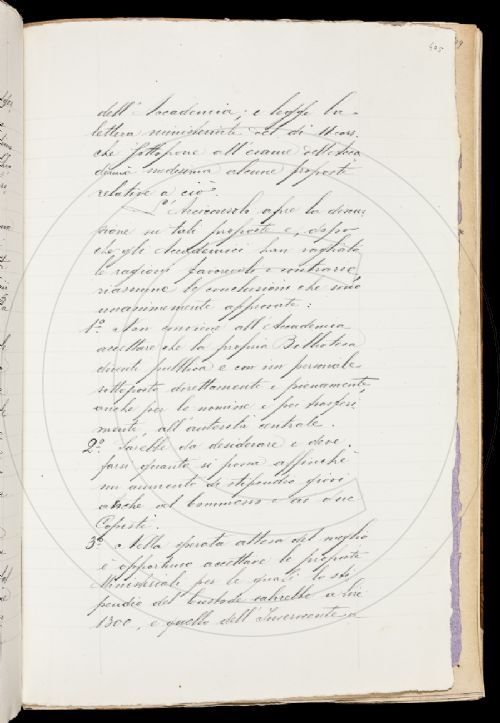 405
dell'Accademia; e legge la
lettera ministeriale del dì 11 cors.
che sottopone all'esame dell'Acca
demia medesima alcune proposte
relative a ciò.
L'Arciconsolo apre la discus
sione su tali proposte e, dopo
che gli Accademici han vagliato
le ragioni favorevoli e contrarie,
riassume le conclusioni che sono
unanimemente approvate:
1.º Non conviene all'Accademia
accettare che la propria Biblioteca
diventi pubblica e con un personale
sottoposto direttamente e pienamente,
anche per le nomine e pei trasferi
menti, all'autorità centrale.
2.º Sarebbe da desiderare e deve
farsi quanto si possa affinchè
un aumento di stipendio giovi
anche al Commesso e ai due
Copisti.
3.º Nella sperata attesa del meglio
è opportuno accettare le proposte
Ministeriali per le quali lo sti
pendio del Custode salirebbe a lire
1300, e quello dell'Inserviente a